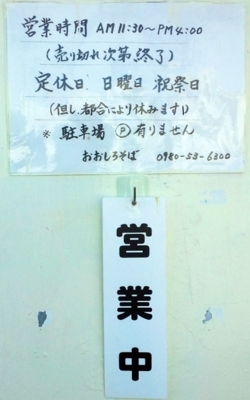 営業時間 AM11:30〜PM4:00
(売り切れ次第終了)
定休日 日曜日 祝祭日
(但し、都合により休みます)
※ 駐車場 Ⓟ 有りません
おおしろそば 0980-53-6300
営業中